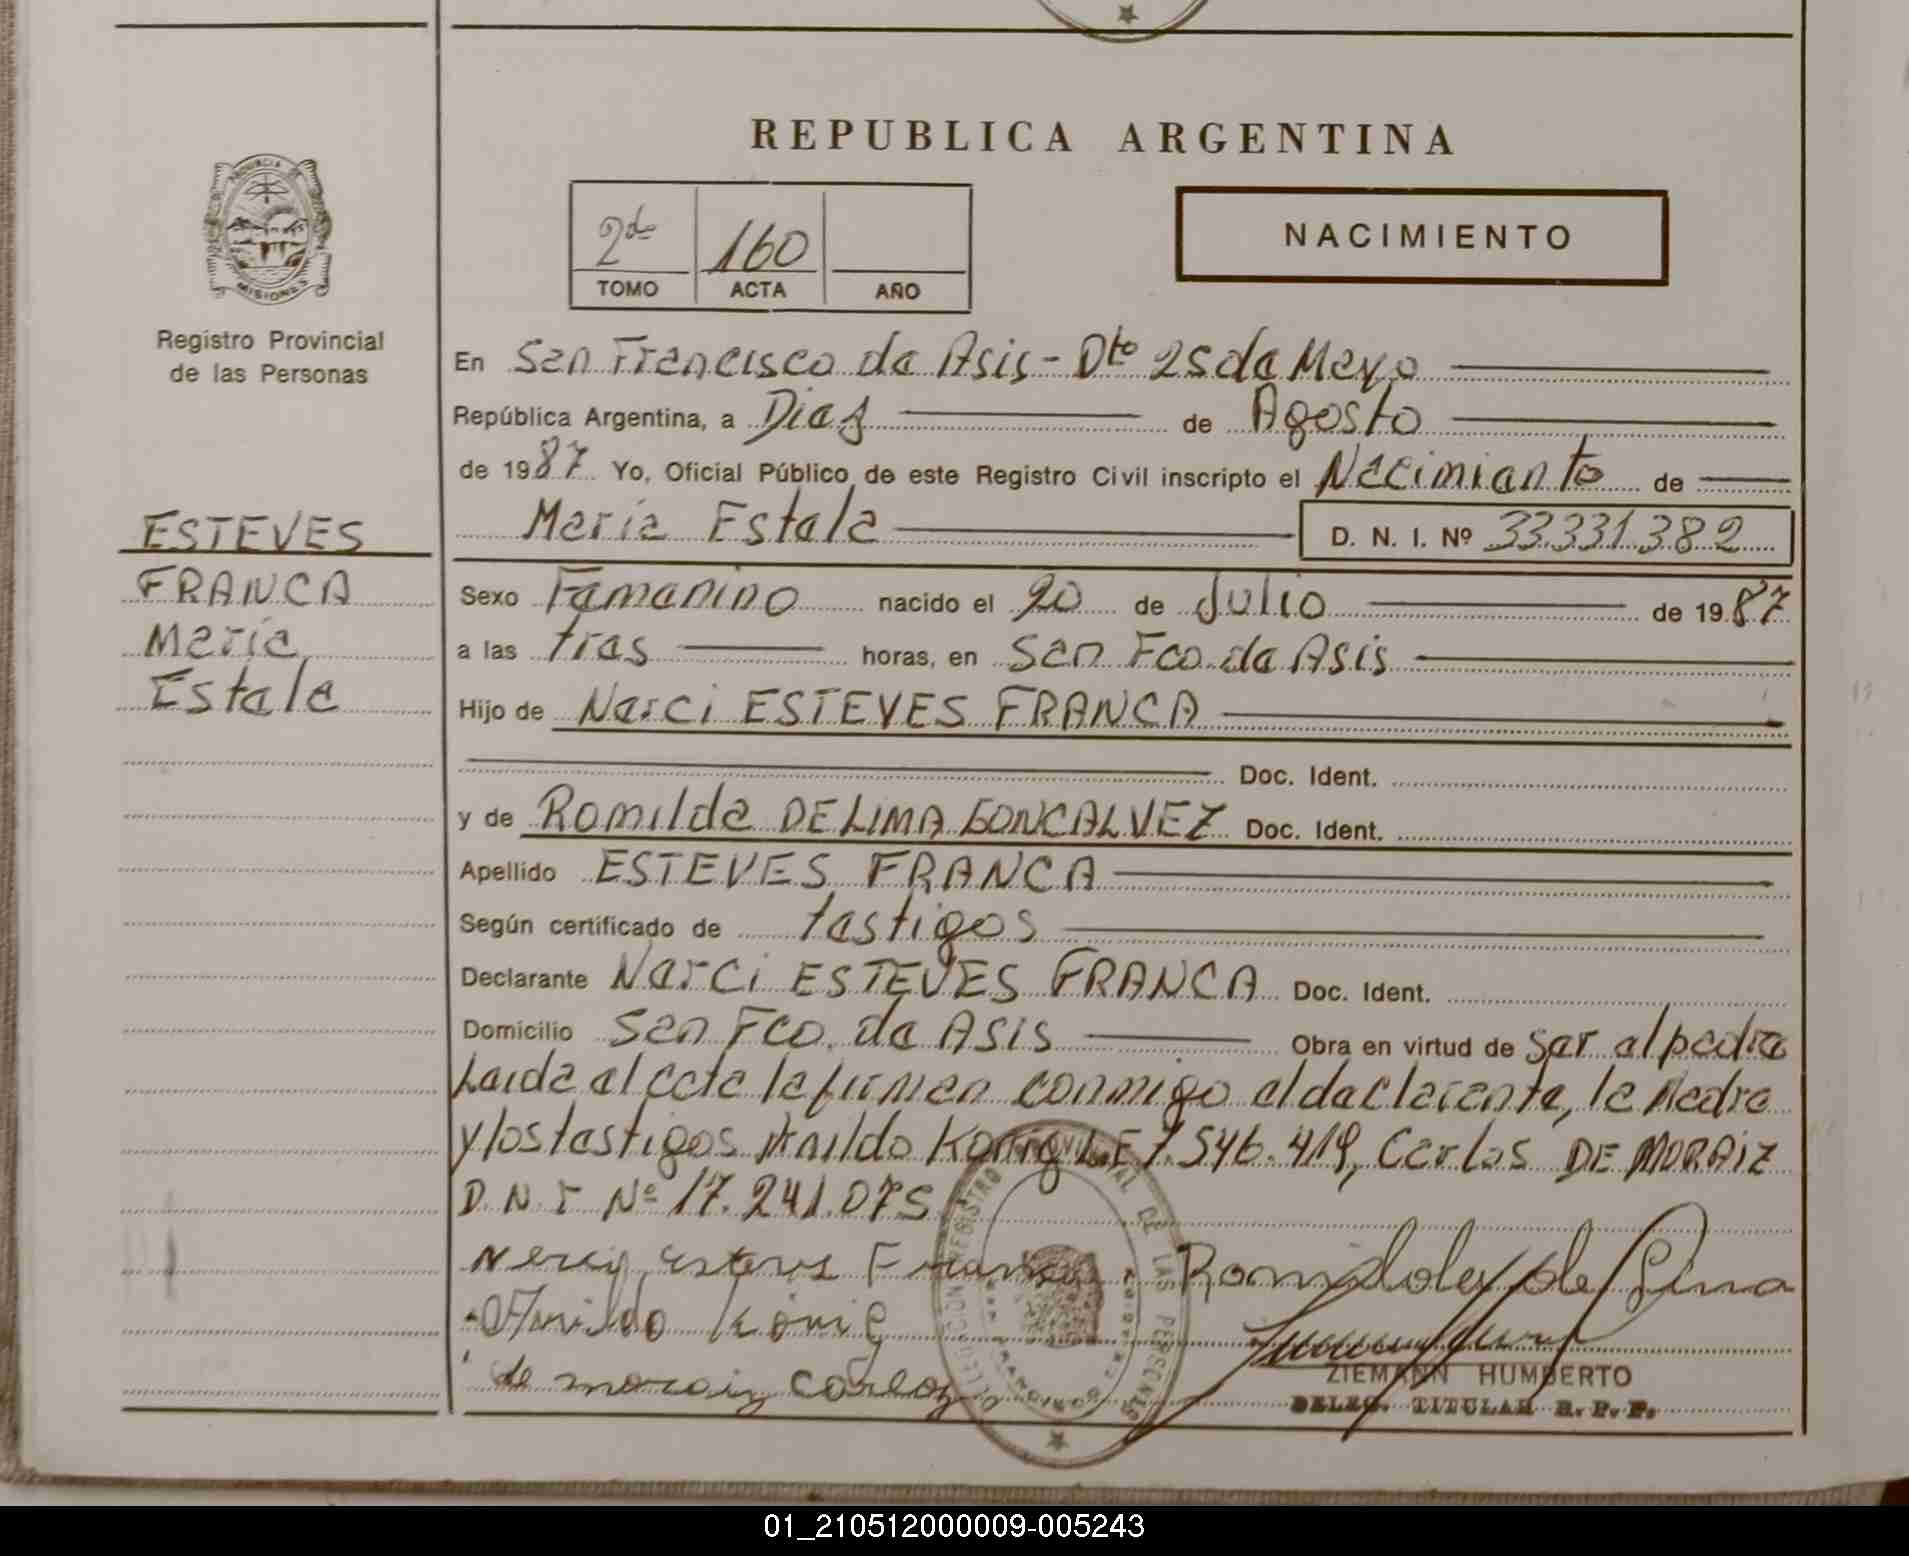 REPUBLICA ARGENTINA
PROVINCIA DE
MISIONES
Registro Provincial
de las Personas
2do 160
TOMO ACTA AÑO
NACIMIENTO
En San Francisco de Asis - Dto 25 de Mayo
República Argentina, a Diez de Agosto
de 1987 Yo, Oficial Público de este Registro Civil inscripto el Nacimiento de
María Estela D. N. I. Nº 33.331.382
ESTEVES
FRANCA
María
Estela
Sexo Femenino nacido el 20 de Julio de 1987
a las tres horas, en San Fco. de Asis
Hijo de Narci ESTEVES FRANCA
Doc. Ident.
y de Romilda DE LIMA GONCALVEZ Doc. Ident.
Apellido ESTEVES FRANCA
Según certificado de testigos
Declarante Narci ESTEVES FRANCA Doc. Ident.
Domicilio San Fco. de Asis Obra en virtud de ser el padre
Leida el acta la firman conmigo el declarante, la Madre
y los testigos Arnildo Konig L.E 7.546.419, Carlos DE MORAIZ
D.N.I Nº 17.241.075
Nercy Esteves Franca Romildolex de Lima
Arnildo König
de moraiz carlos
ZIEMANN HUMBERTO
DELEG. TITULAR R. P. P.
01_210512000009-005243